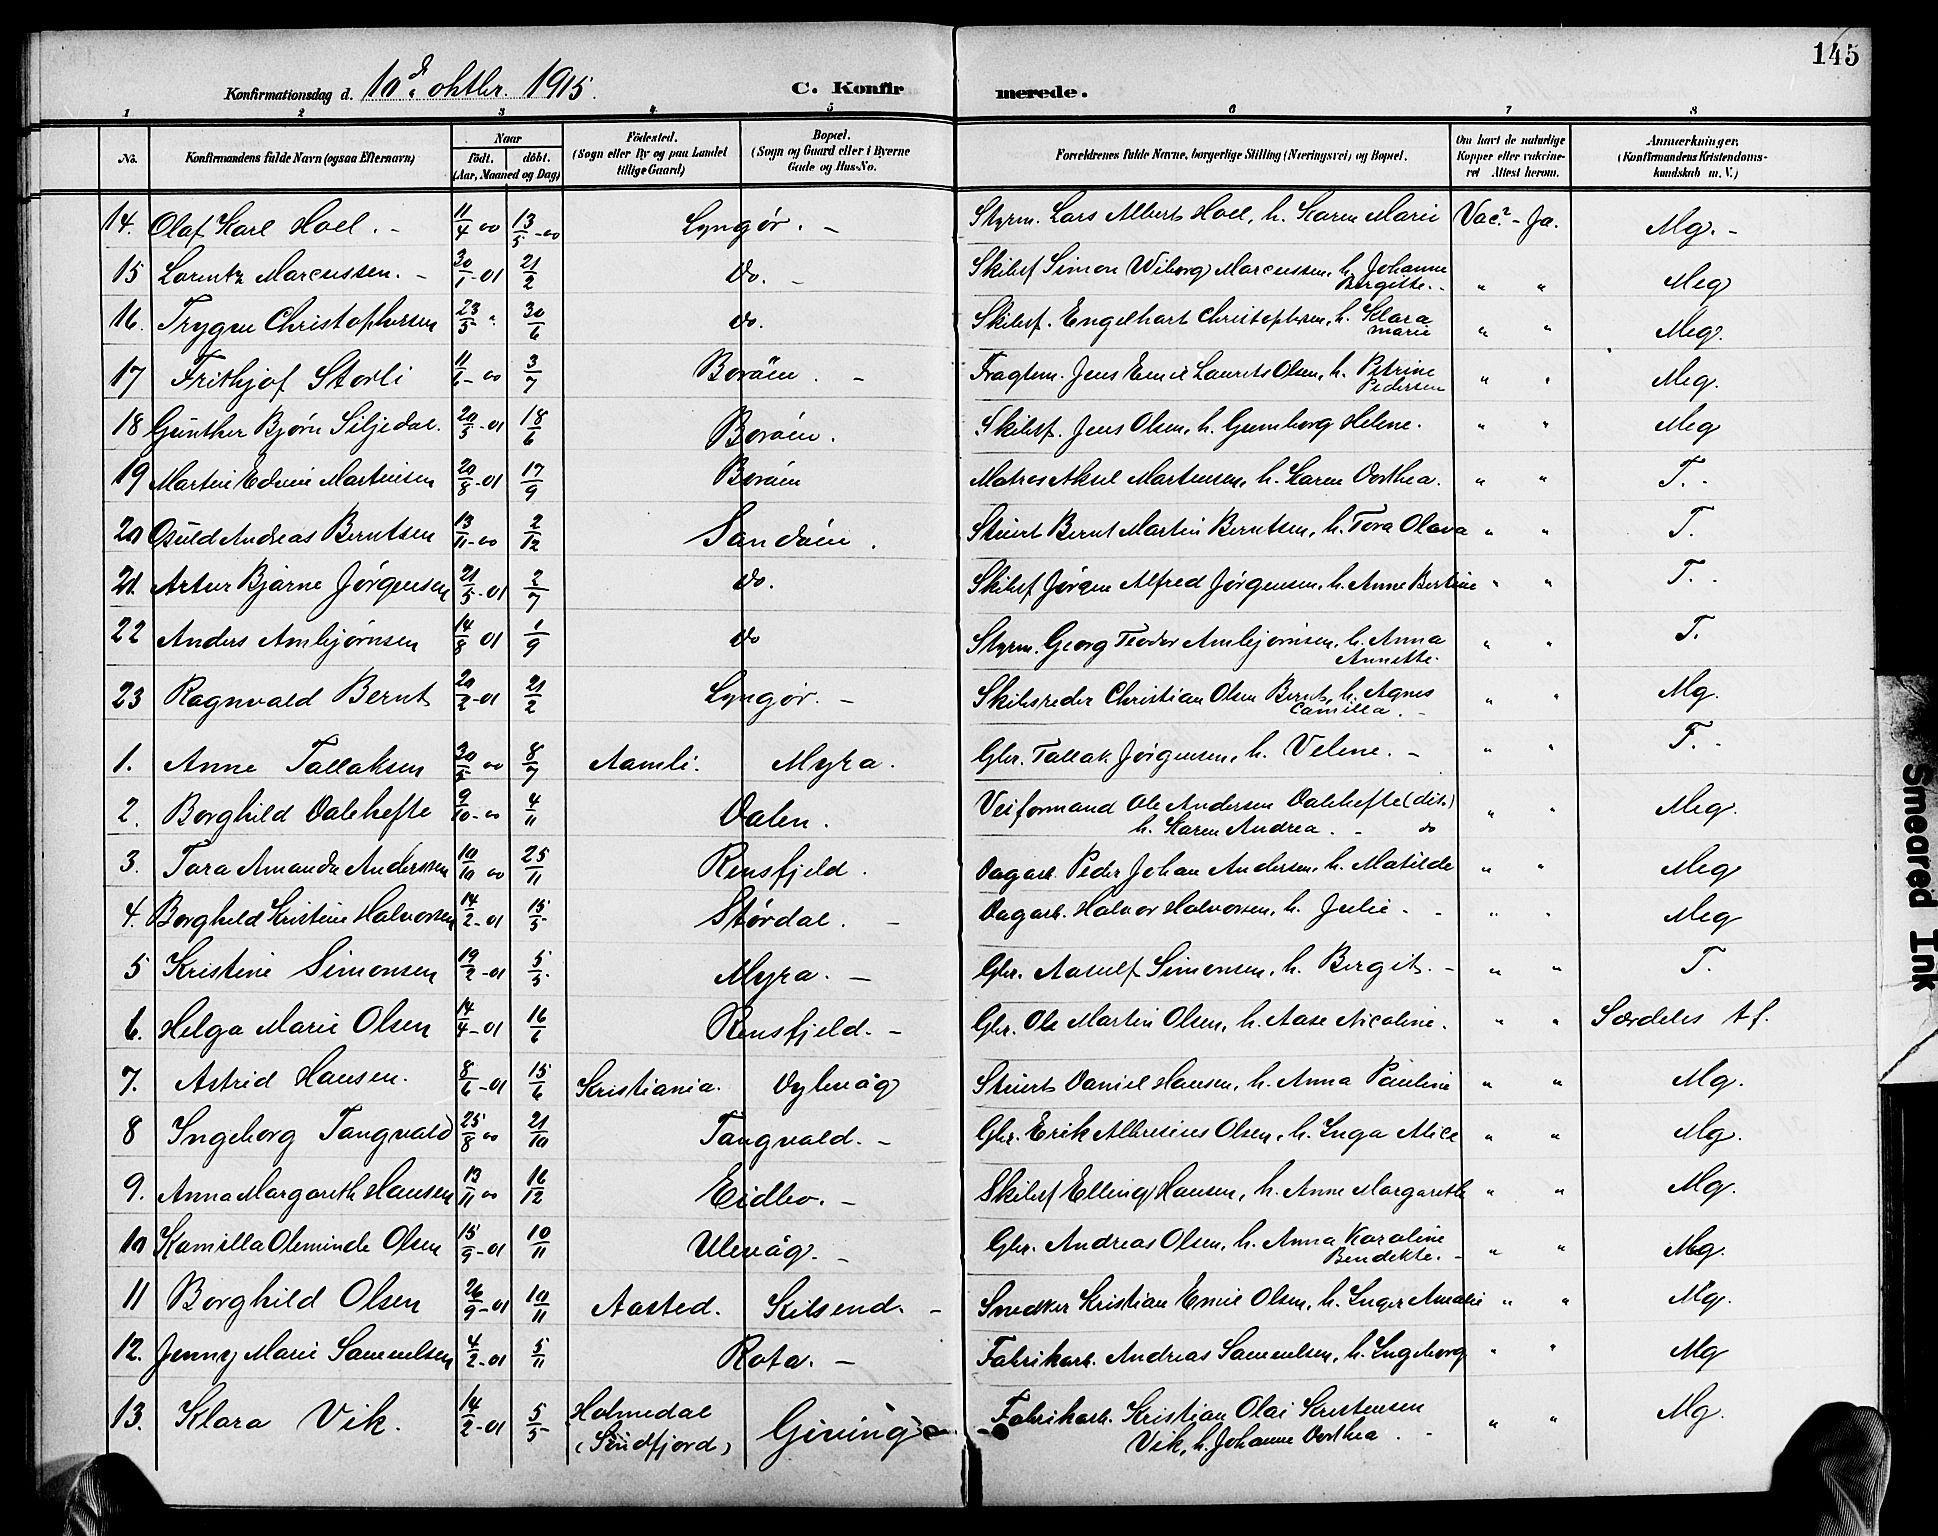 145
Konfirmationsdag d. 10de oktbr. 1915.
C. Konfirmerede.
1 2 3 4 5 6 7 8
No. Konfirmandens fulde Navn (ogsaa Efternavn) Naar født. døbt. (Aar, Maaned og Dag) Födested. (Sogn eller By og paa Landet tillige Gaard) Bopæl. (Sogn og Gaard eller i Byerne Gade og Hus-No. Forældrenes fulde Navne, borgerlige Stilling (Næringsvei) og Bopæl. Om havt de naturlige Kopper eller vakcineret Attest herom. Anmærkninger. (Konfirmandens Kristendomskundskab m. V.)
14. Olaf Karl Hoel. - 11/4 00 13/5-00 Lyngör. - Styrm. Lars Albert Hoel, h. Karen Marie Vac? - Ja. Mg. -
15 Lorentz Marcussen. - 30/1-01 21/2 do. - Skibsf Simon Wiborg Marcussen, h. Johanne Bergitte. - " " Meg
16. Trygve Christophersen 23/5 " 30/6 do. Skibsf. Engelhart Christophersen, h. Klara Marie " " Meg.
17 Frithjof Storli 11/6-00 3/7 Boröen. - Fragtem. Jens Emil Laurits Olsen, h. Petrine Pedersen " " Meg.
18 Günther Bjørn Siljedal. 20/5-01 18/6 Boröen. Skibsf. Jens Olsen, h. Gunnborg Helene. " " Meg
19 Martin Edvin Martinsen 20/8-01 17/9 Boröen Matros Aksel Martensen, h. Karen Dorthea. " " T. -
20 Osuld Andreas Berntsen 13/11-00 2/12 Sandöen. Stuert Bernt Martin Berntsen, h. Tora Olava " " T.
21. Artur Bjarne Jørgensen 21/5-01 2/7 do. Skibsf Jørgen Alfred Jørgensen, h. Anne Bertine " " T. -
22 Anders Ambjørnsen 14/8 01 1/9 do Styrm. Georg Teodor Ambjørnsen, h. Anna Annette. " " T.
23 Ragnvald Bernt 20/2-01 21/2 Lyngör. - Skibsreder Christian Olsen Bernt, h. Agnes Camilla. - " " Mg.
1. Anne Tallaksen 30/5 00 8/7 Aamli. Myra. Gbr. Tallak Jörgensen, h. Velene. - " " T. -
2. Borghild Dalehefte 9/10-00 4/11 Dalen. Veiformand Ole Andersen Dalehefte (dit.) h. Karen Andrea. - do " " Meg.
3. Tora Amanda Anderssen 10/10 00 25/11 Rensfjeld. Dagarb. Peder Johan Andersen, h. Matilde " " Meg
4. Borghild Kristine Halvorsen 14/2-01 15/5 Stördal. - Dagarb. Halvor Halvorsen, h. Julie. - " " Meg
5 Kristine Simonsen 19/2-01 5/5 Myra. - Gbr. Aasulf Simonsen, h. Bergit. - " " T.
6. Helga Marie Olsen 14/4-01 16/6 Rensfjeld. - Gbr. Ole Martin Olsen, h. Aase Nicoline. " " Særdeles tf.
7. Astrid Hansen. 8/6-01 15/6 Kristiania. Dybvåg Stuert Daniel Hansen, h. Anna Pauline " " Mg.
8 Ingeborg Tangvald 25/8 00 21/10 Tangvald. - Gbr. Erik Albresius Olsen, h. Inga Alice " " Mg.
9. Anna Margareth Hansen 13/11 00 16/12 Eidbo. - Skibsf Elling Hansen, h. Anne Margarethe " " Mg.
10 Kamilla Oleminde Olsen 15/9-01 10/11 Ulevåg. - Gbr. Andreas Olsen, h. Anna Karoline Bendikte. - " " Mg.
11 Borghild Olsen 26/9-01 10/11 Aasted. Kilsend. - Snedker Kristian Emil Olsen, h. Inger Amalie " " Mg.
12. Jenny Marie Samuelsen 4/2-01 5/11 Rota. - Fabrikarb. Andreas Samuelsen, h. Ingeborg " " Mg
13. Klara Vik. 14/2-01 5/5 Holmedal (Søndfjord) Giving - Fabrikarb. Kristian Olai Kristensen Vik, h. Johanne Dorthea. - " " Mg.
Smeared Ink